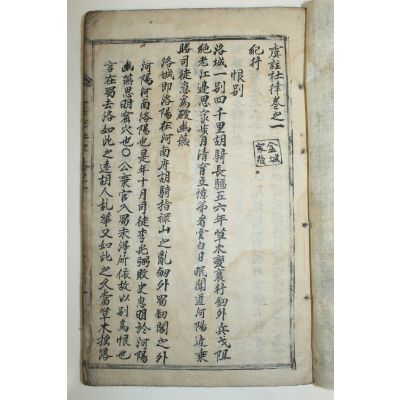 虞註杜律卷之一
紀行
恨別
洛城一別四千里胡騎長驅五六年草木變衰行劒外兵戈阻
絶老江邊思家步月清宵立憶弟看雲白日眠聞道河陽近乗
勝司徒急爲破幽燕
洛城即洛陽在河南府胡騎指禄山之亂劒外蜀劒閣之外
河陽河南洛陽也是年十月司徒李光弼敗史思明於河陽
幽燕思明窟穴也○公棄官入蜀未淂所依故以別爲恨也
言在蜀去洛如此之遠胡人乱華又如此之久當草木搖落